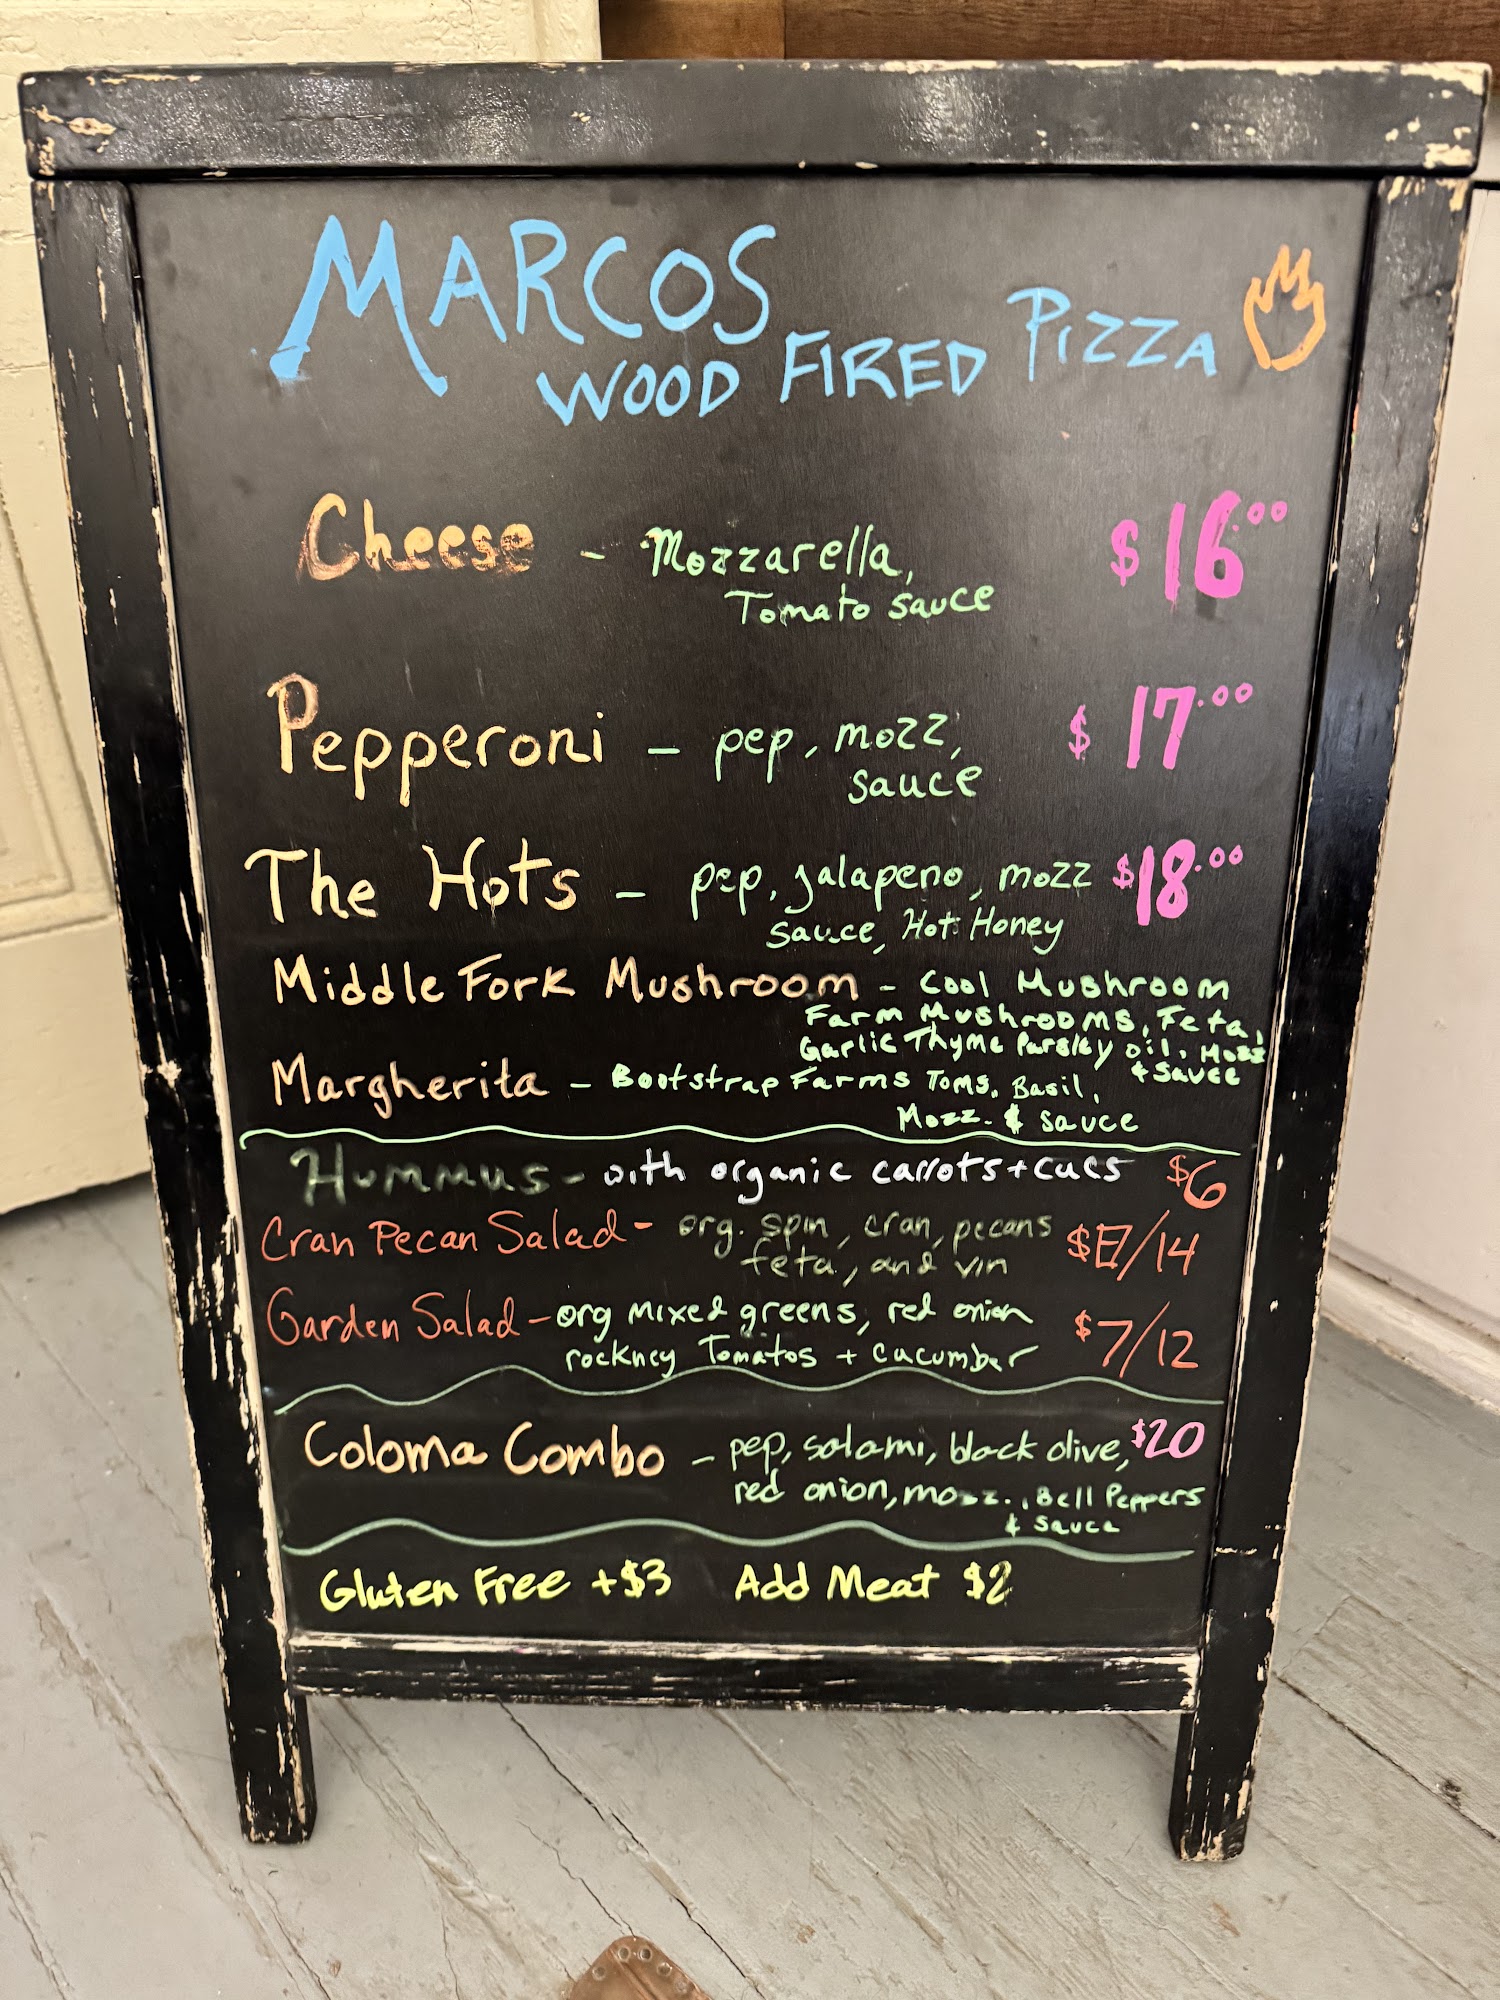 MARCOS
WOOD FIRED PIZZA
Cheese - Mozzarella, $16.00
Tomato sauce
Pepperoni - pep, mozz, $17.00
sauce
The Hots - pep, jalapeno, mozz $18.00
sauce, Hot Honey
Middle Fork Mushroom - Cool Mushroom
Farm Mushrooms, Feta,
Garlic Thyme Parsley oil, Mozz
& Sauce
Margherita - Bootstrap Farms Toms, Basil,
Mozz. & Sauce
Hummus - with organic carrots + cucs $6
Cran Pecan Salad - org. spin, cran, pecans /14
feta, and vin
Garden Salad - org mixed greens, red onion $7/12
rockney Tomatos + cucumber
Coloma Combo - pep, salami, black olive, $20
red onion, mozz., Bell Peppers
& sauce
Gluten Free +$3 Add Meat $2